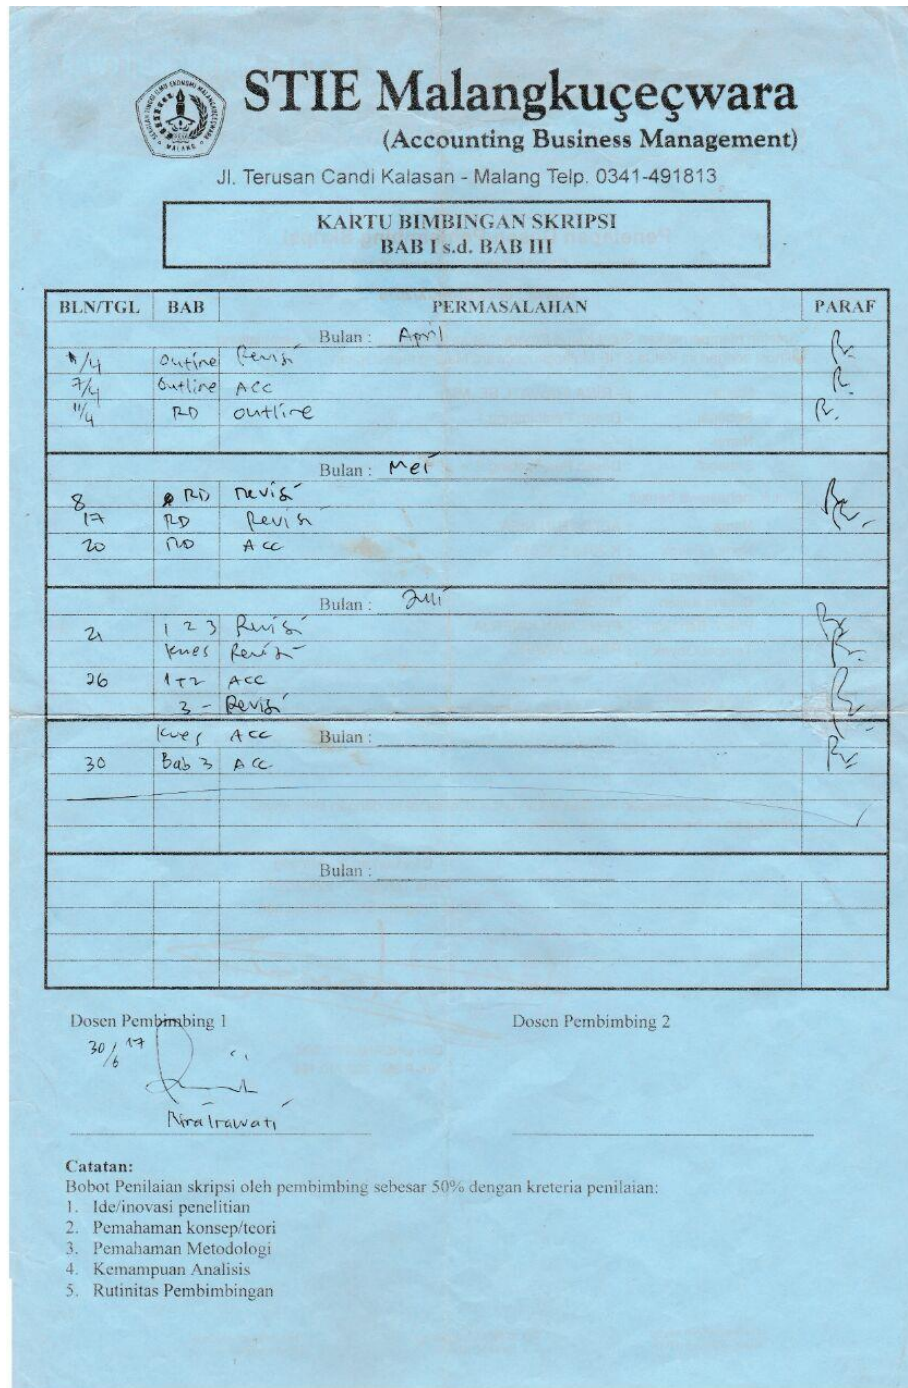 STIE Malangkuçeçwara
(Accounting Business Management)
Jl. Terusan Candi Kalasan - Malang Telp. 0341-491813
KARTU BIMBINGAN SKRIPSI
BAB I s.d. BAB III
BLN/TGL BAB PERMASALAHAN PARAF
Bulan : April
/4 Outline Revisi
7/4 Outline ACC
11/4 RD Outline
Bulan : Mei
8 RD Revisi
17 RD Revisi
20 RD ACC
Bulan : Juli
21 1 2 3 Revisi
Kues Revisi
26 1+2 ACC
3 - Revisi
Kues ACC Bulan :
30 Bab 3 ACC
Bulan :
Dosen Pembimbing 1 Dosen Pembimbing 2
30/6 17
Catatan:
Bobot Penilaian skripsi oleh pembimbing sebesar 50% dengan kreteria penilaian:
1. Ide/inovasi penelitian
2. Pemahaman konsep/teori
3. Pemahaman Metodologi
4. Kemampuan Analisis
5. Rutinitas Pembimbingan